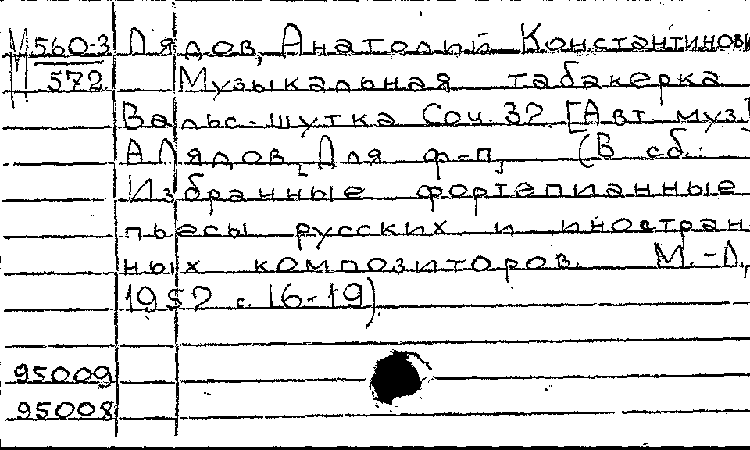 М 560-3 Лядов, Анатолий Константинови
572 Музыкальная табакерка
Вальс-шутка Соч. 32 [Авт. муз.]
А. Лядов, [Для ф-п.] (В сб.:
Избранные фортепианные
пьесы русских и иностран-
ных композиторов. М.-Л.,
1952 с. 16-19)
95009
95008